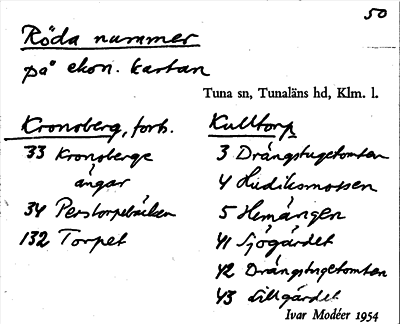 50
Röda nummer
på ekon. kartan
Tuna sn, Tunaläns hd, Klm. l.
Kronoberg, forts.
33 Kronobergs
ängar
34 Perstorpsbäcken
132 Torpet
Kulltorp
3 Drängstugetomten
4 Hidiksmossen
5 Hemängen
41 Sjögärdet
42 Drängstugetomten
43 Lillgärdet
Ivar Modéer 1954